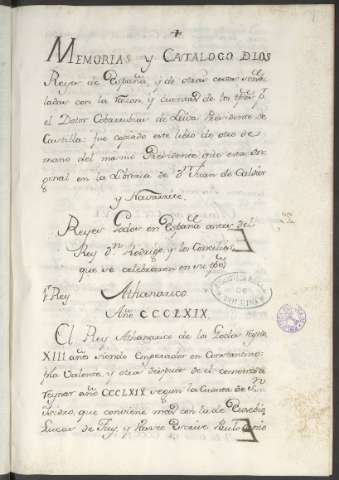 MEMORIAS y CATALOGO DLOS
Reyes de España, y de otras cosas señaladas
ladas con la razon y cuenta de los tpos.
el Dotor Cobarrubias de Leiva Presidente de
Castilla: fue copiado este libro de otro de
mano del mesmo Presidente que esta original
genal en la Libreria de Dn. Juan de
y Navarrete.
Reyes Godos en España antes del
Rey Dn. Rodrigo, y los Concilios
que se celebraron en sus tpos.
1r. Rey Athanarico
Año CCCLXIX.
El Rey Athanarico de los Godos reyno
XIII años siendo Emperador en Constantino-
pla Valente y otros despues de el comenzo a
reynar año CCCLXIX segun la cuenta de Sn.
Isidro, que conviene mas con la de Eusebio
Lucas de Tuy, y